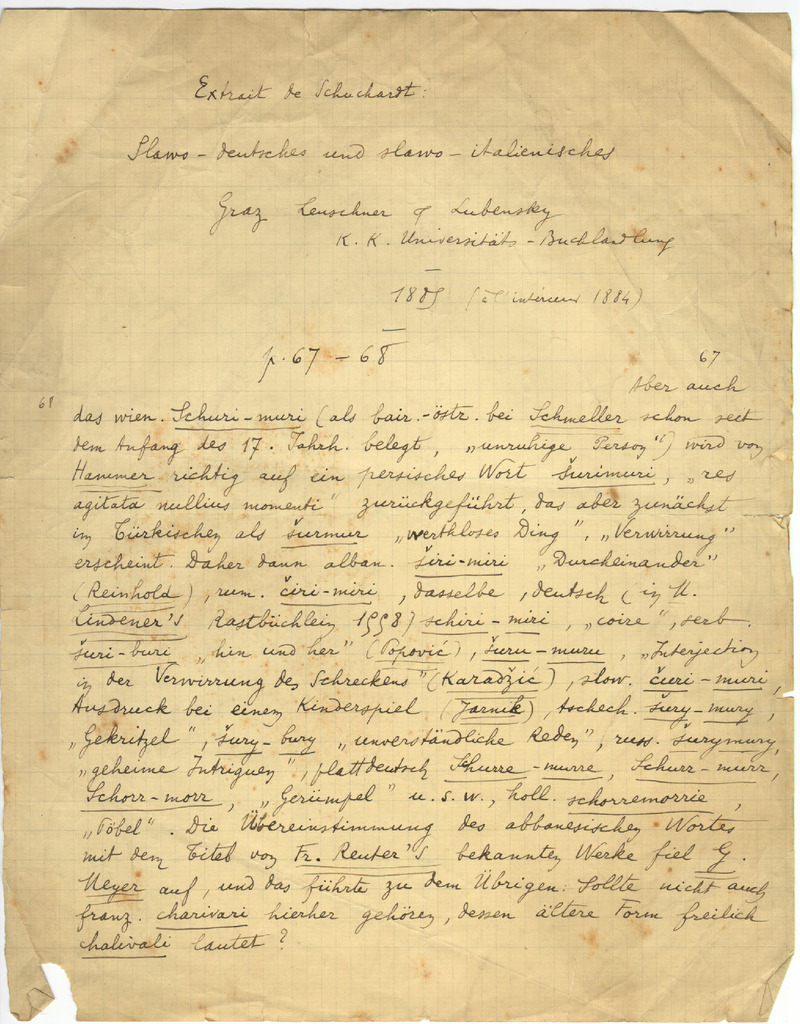 Extrait de Schuchardt:
Slawo-deutsches und slawo-italienisches
Graz Leuschner & Lubensky
K. K. Universitäts-Buchhandlung
—
1885 (à l'intérieur 1884)
—
p. 67 – 68
67
Aber auch
68
das wien. Schuri-muri (als bair.-östr. bei Schmeller schon seit
dem Anfang des 17. Jahrh. belegt, „unruhige Person") wird von
Hammer richtig auf ein persisches Wort šurimuri, „res
agitata nullius momenti" zurückgeführt, das aber zunächst
im Türkischen als šurmur „werthloses Ding", „Verwirrung"
erscheint. Daher dann alban. širi-miri „Durcheinander"
(Reinhold), rum. čiri-miri, dasselbe, deutsch (in M.
Lindener's Rastbüchlein 1558) schiri-miri, „coire", serb.
šuri-buri „hin und her" (Popović), šuru-muru, „Interjection
in der Verwirrung des Schreckens" (Karadžić), slow. čuri-muri,
Ausdruck bei einem Kinderspiel (Jarnik), tschech. šury-mury,
„Gekritzel", šury-bury „unverständliche Reden", russ. šurymury,
„geheime Intriguen", plattdeutsch Schurre-murre, Schurr-murr,
Schorr-morr, „Gerümpel" u.s.w., holl. schorremorrie,
„Pöbel". Die Übereinstimmung des albanesischen Wortes
mit dem Titel von Fr. Reuter's bekannten Werke fiel G.
Meyer auf, und das führte zu dem Übrigen. Sollte nicht auch
franz. charivari hierher gehören, dessen ältere Form freilich
chalivali lautet?